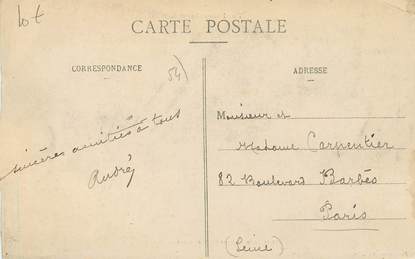 Lot
CARTE POSTALE
CORRESPONDANCE
54
ADRESSE
sincères amitiés à tous
André
Monsieur et
Madame Carpentier
82 Boulevard Barbès
Paris
(Seine)